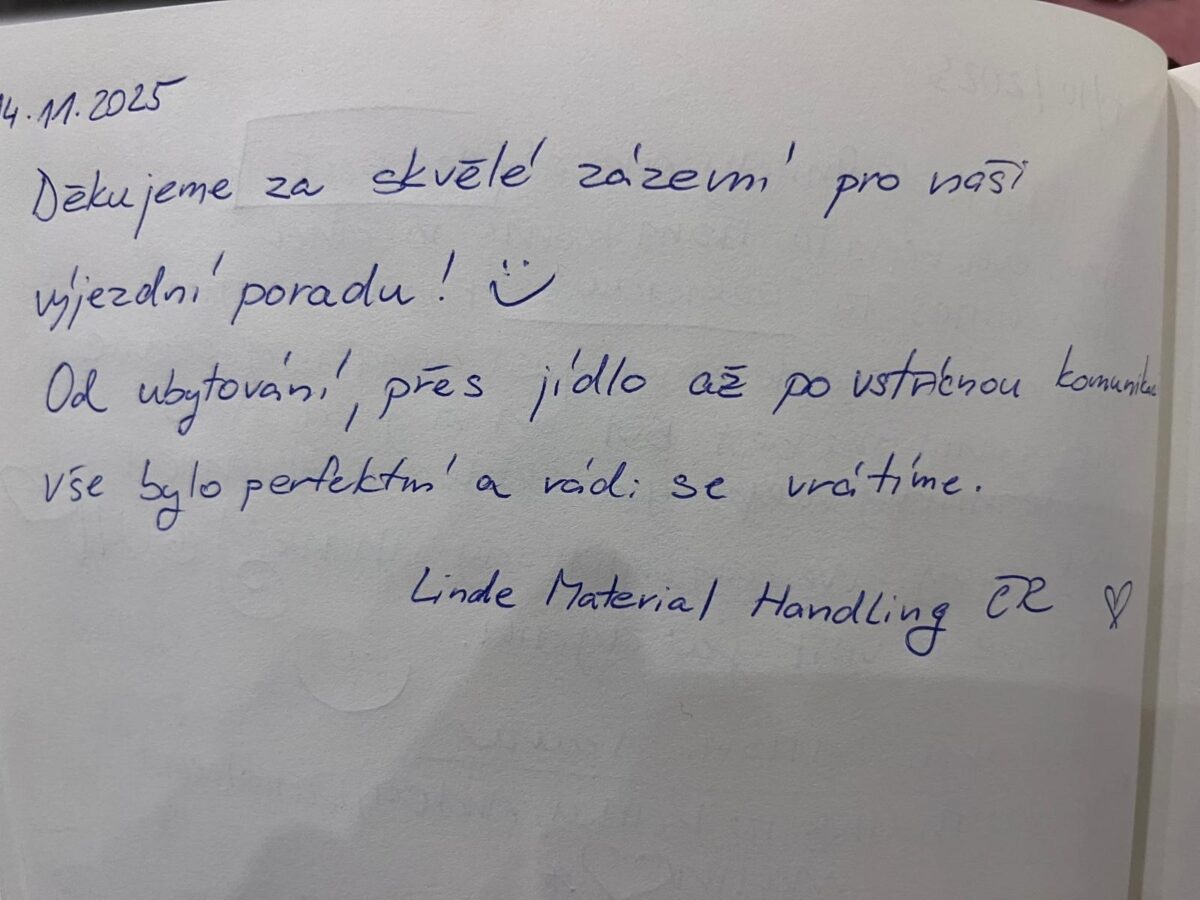 14.11.2025
Děkujeme za skvělé zázemí pro naši
výjezdní poradu! :)
Od ubytování, přes jídlo až po vstřícnou
vše bylo perfektní a rádi se vrátíme.
Linde Material Handling ČR ♡